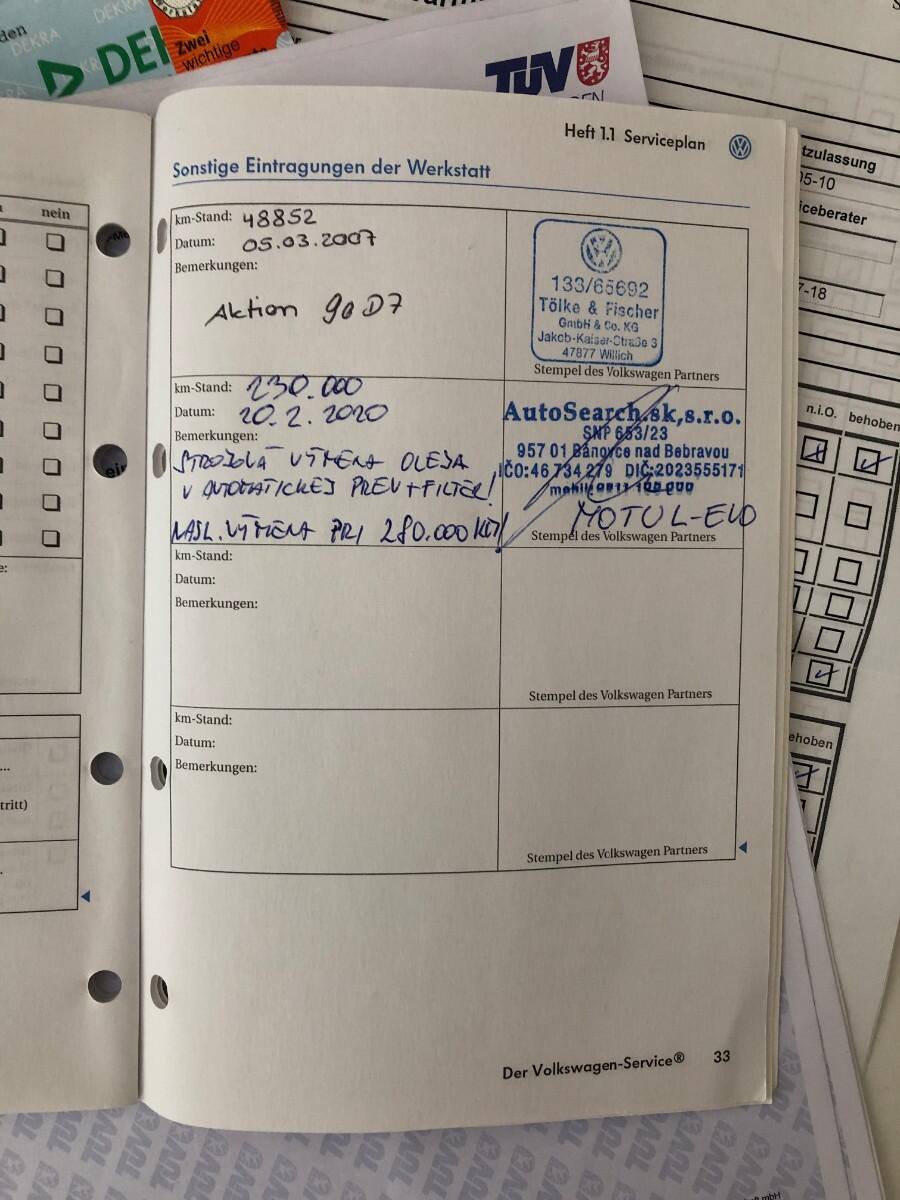 den
DEKRA
DEKRA
Zwei
wichtige
TÜV
Heft 1.1 Serviceplan
Sonstige Eintragungen der Werkstatt
nein
km-Stand: 48852
Datum: 05.03.2007
Bemerkungen:
Aktion 90D7
133/65692
Tölke & Fischer
GmbH & Co. KG
Jakob-Kaiser-Straße 3
47877 Willich
Stempel des Volkswagen Partners
km-Stand: 230.000
Datum: 20.2.2020
Bemerkungen:
STROJOVÁ VÝMENA OLEJA
V AUTOMATICKEJ PREV + FILTER!
NASL. VÝMENA PRI 280.000 KM!
AutoSearch.sk,s.r.o.
SNP 653/23
957 01 Bánovce nad Bebravou
IČO:46 734 279 DIČ:2023555171
MOTUL-EVO
Stempel des Volkswagen Partners
km-Stand:
Datum:
Bemerkungen:
Stempel des Volkswagen Partners
km-Stand:
Datum:
Bemerkungen:
Stempel des Volkswagen Partners
Der Volkswagen-Service® 33
tzulassung
05-10
iceberater
7-18
n.i.O. behoben
ehoben
tritt)